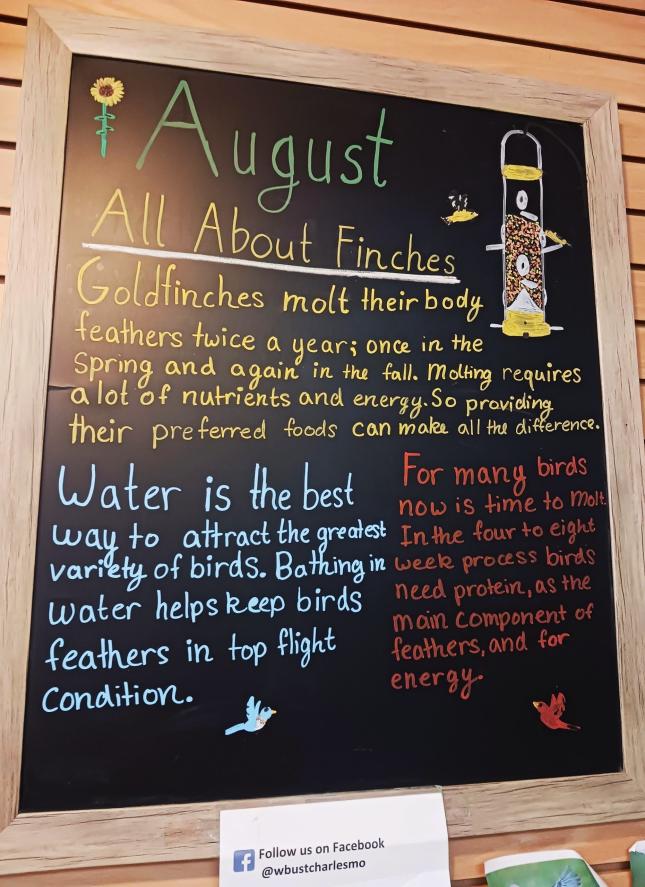 August
All About Finches
Goldfinches molt their body
feathers twice a year; once in the
Spring and again in the fall. Molting requires
a lot of nutrients and energy. So providing
their preferred foods can make all the difference.
Water is the best
way to attract the greatest
variety of birds. Bathing in
water helps keep birds
feathers in top flight
Condition.
For many birds
now is time to Molt.
In the four to eight
week process birds
need protein, as the
main component of
feathers, and for
energy.
Follow us on Facebook
@wbustcharlesmo